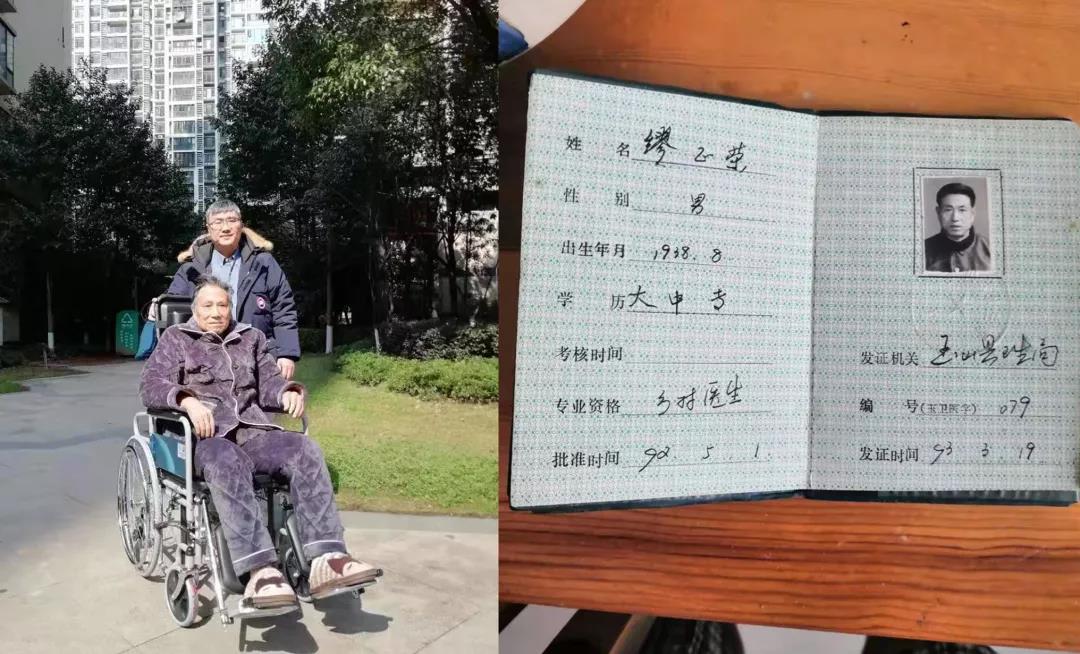 姓 名 缪正荣
性 别 男
出生年月 1938.8
学 历 大中专
考核时间
专业资格 乡村医生
批准时间 92.5.1.
发证机关 玉山县卫生局
编 号(玉卫医字) 079
发证时间 93 3 19